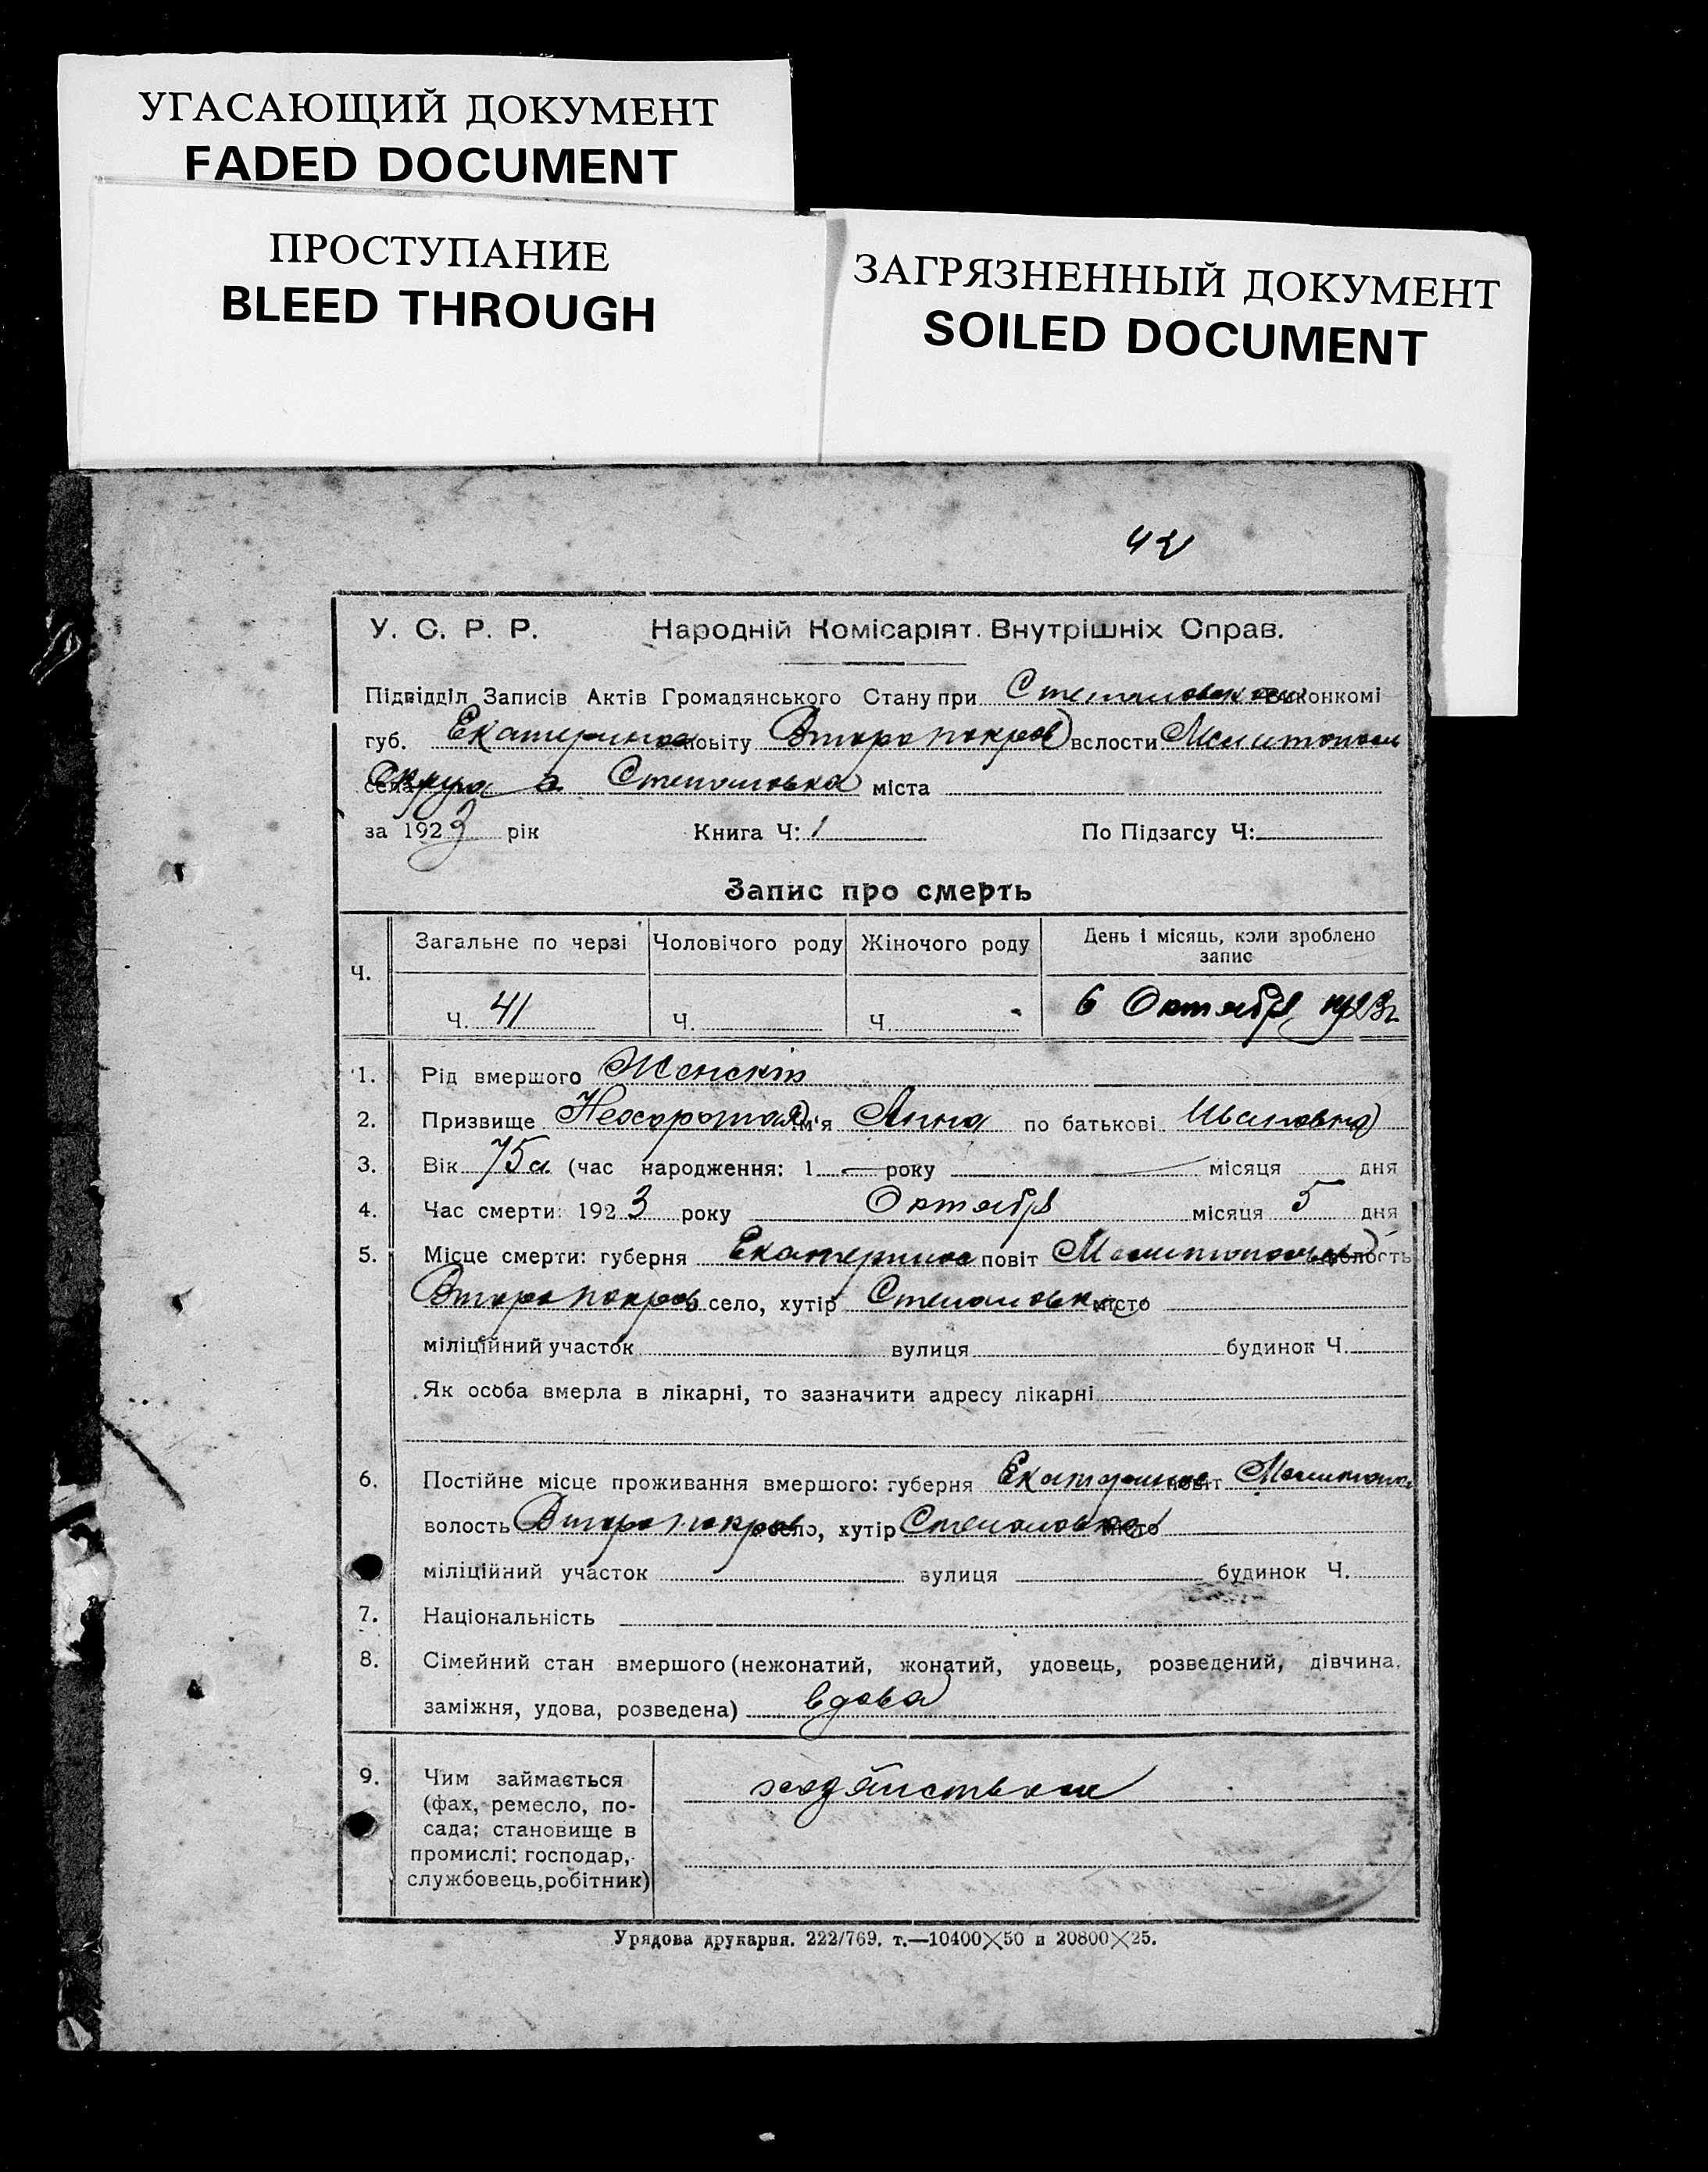 УГАСАЮЩИЙ ДОКУМЕНТ
FADED DOCUMENT
ПРОСТУПАНИЕ
BLEED THROUGH
ЗАГРЯЗНЕННЫЙ ДОКУМЕНТ
SOILED DOCUMENT
42
У. С. Р. Р. Народній Комісаріят Внутрішніх Справ.
Підвідділ Записів Актів Громадянського Стану при Степановском Виконкомі
губ. Екатеринос повіту Второпокров волости Мелитополь
села Округа с Степановка міста
за 1923 рік Книга Ч: 1 По Підзагсу Ч:
Запис про смерть
Ч. Загальне по черзі Чоловічого роду Жіночого роду День і місяць, коли зроблено запис
Ч. 41 Ч. Ч. 6 Октября 1923г
1. Рід вмершого Женскій
2. Призвище Нехорошая Ім'я Анна по батькові Ивановна
3. Вік 75 л. (час народження: 1 — року — місяця дня
4. Час смерти: 1923 року Октября місяця 5 дня
5. Місце смерти: губерня Екатеринос повіт Мелитопольск волость
Второпокров село, хутір Степановка місто
міліційний участок вулиця будинок Ч.
Як особа вмерла в лікарні, то зазначити адресу лікарні
6. Постійне місце проживання вмершого: губерня Екатеринос повіт Мелитопол
волость Второпокров село, хутір Степановка місто
міліційний участок вулиця будинок Ч.
7. Національність
8. Сімейний стан вмершого (нежонатий, жонатий, удовець, розведений, дівчина,
заміжня, удова, розведена) вдова
9. Чим займається хозяйством
(фах, ремесло, по-
сада; становище в
промислі: господар,
службовець, робітник)
Урядова друкарня. 222/769. т.—10400×50 и 20800×25.